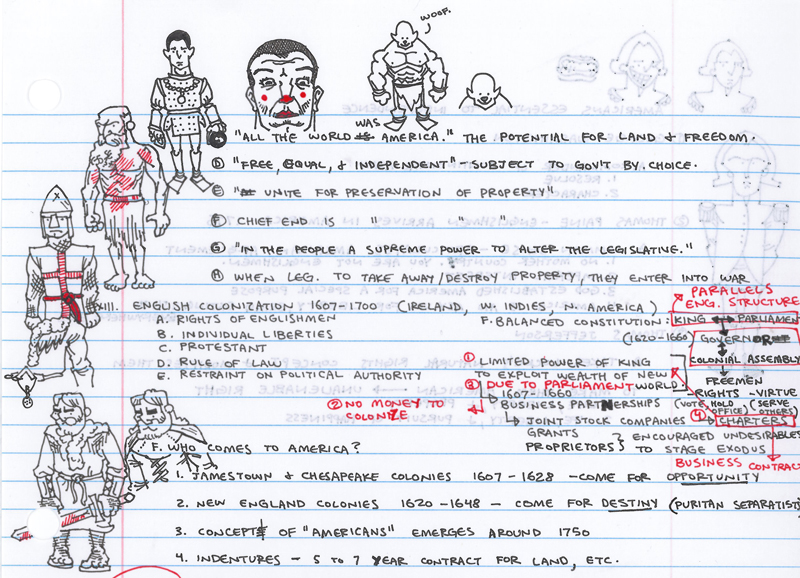 WOOF.
"ALL THE WORLD WAS AMERICA." THE POTENTIAL FOR LAND & FREEDOM.
D "FREE, EQUAL, & INDEPENDENT" - SUBJECT TO GOV'T BY CHOICE.
E " UNITE FOR PRESERVATION OF PROPERTY"
F CHIEF END IS " " " "
G "IN THE PEOPLE A SUPREME POWER TO ALTER THE LEGISLATIVE."
H WHEN LEG. TO TAKE AWAY/DESTROY PROPERTY, THEY ENTER INTO WAR
PARALLELS
ENG. STRUCTURE
XIII. ENGLISH COLONIZATION 1607-1700 (IRELAND, W. INDIES, N. AMERICA)
A. RIGHTS OF ENGLISHMEN
B. INDIVIDUAL LIBERTIES
C. PROTESTANT
D. RULE OF LAW
E. RESTRAINT ON POLITICAL AUTHORITY
F. BALANCED CONSTITUTION: KING ↔ PARLIAMENT
(1620-1660) GOVERNOR
COLONIAL ASSEMBLY
FREEMEN
-RIGHTS -VIRTUE
(VOTE, HOLD OFFICE) (SERVE OTHERS)
1 LIMITED POWER OF KING
TO EXPLOIT WEALTH OF NEW
WORLD.
3 DUE TO PARLIAMENT
2 NO MONEY TO
COLONIZE
1607-1660
BUSINESS PARTNERSHIPS
JOINT STOCK COMPANIES
4 CHARTERS
GRANTS
PROPRIETORS } ENCOURAGED UNDESIRABLES
TO STAGE EXODUS
BUSINESS CONTRACT
F. WHO COMES TO AMERICA?
1. JAMESTOWN & CHESAPEAKE COLONIES 1607-1628 - COME FOR OPPORTUNITY
2. NEW ENGLAND COLONIES 1620-1648 - COME FOR DESTINY (PURITAN SEPARATISTS)
3. CONCEPT OF "AMERICANS" EMERGES AROUND 1750
4. INDENTURES - 5 TO 7 YEAR CONTRACT FOR LAND, ETC.